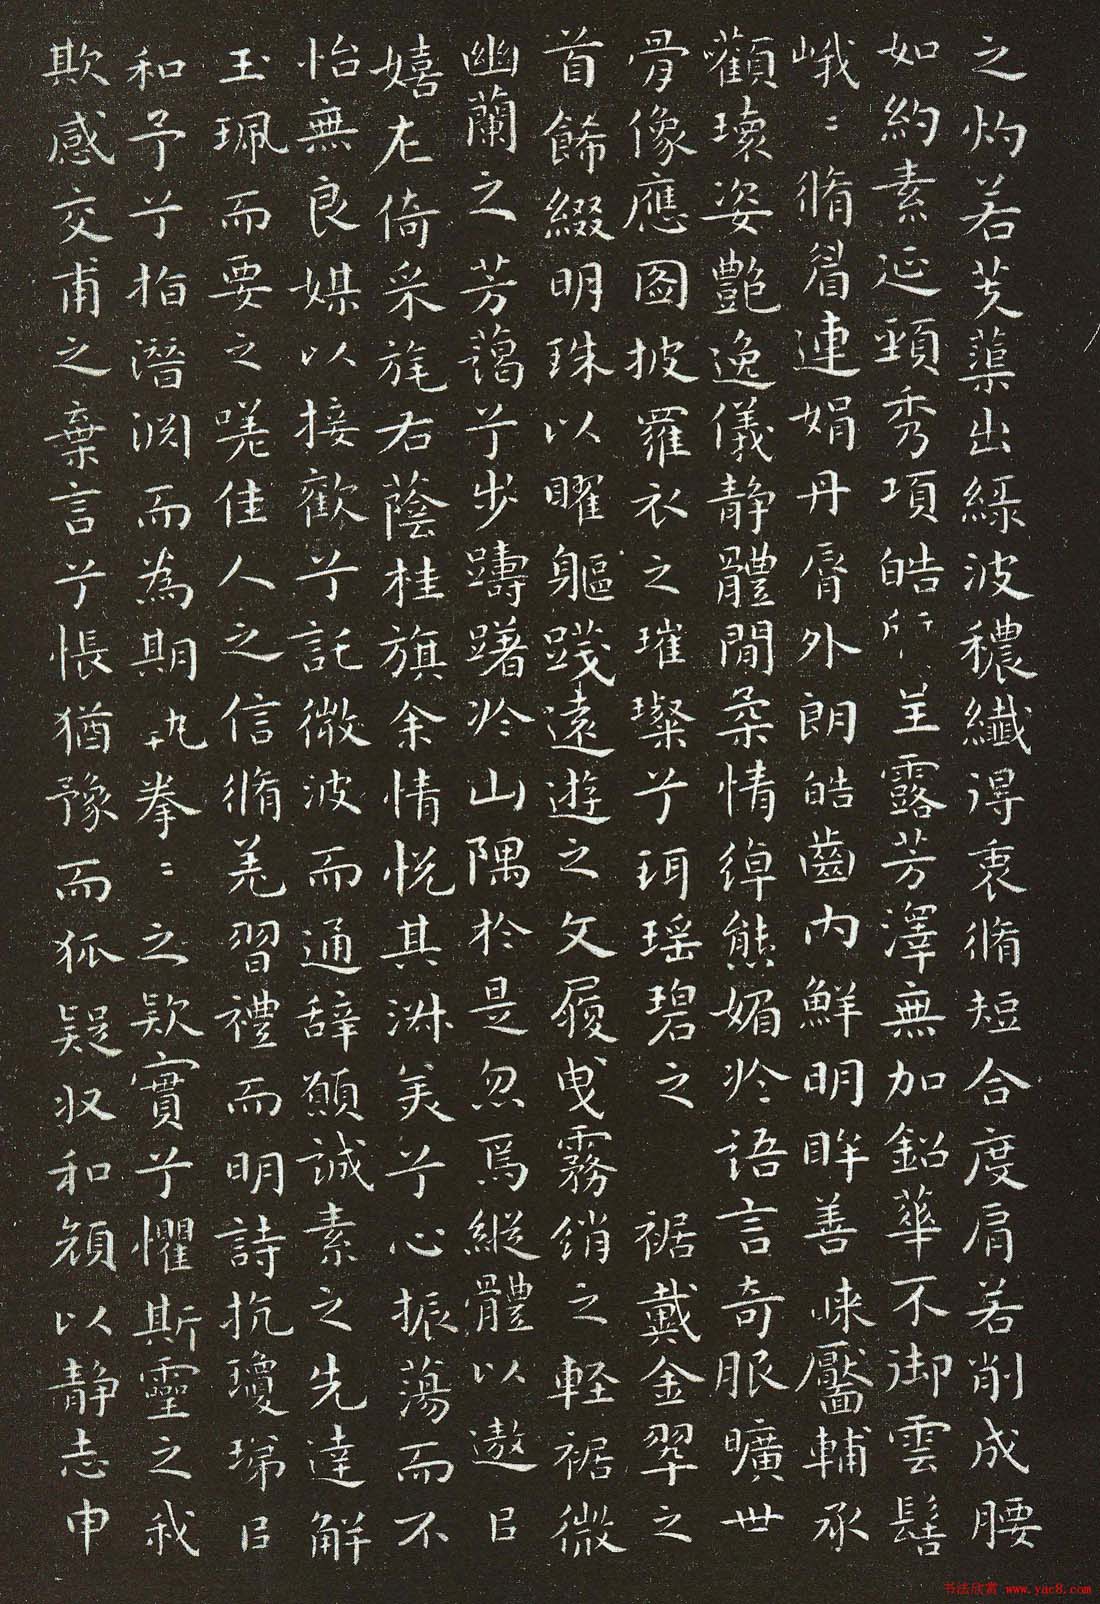 之灼若芙蕖出綠波穠纖得衷脩短合度肩若削成腰
如約素延頸秀項皓呈露芳澤無加鉛華不御雲髻
峨〻脩眉連娟丹脣外朗皓齒内鮮明眸善睞靨輔承
顴瓌姿艷逸儀静體閒柔情綽態媚於語言奇服曠世
骨像應圖披羅衣之璀璨兮珥瑶碧之裾戴金翠之
首飾綴明珠以曜軀踐遠遊之文履曳霧綃之軽裾微
幽蘭之芳藹兮步躊躇於山隅於是忽焉縱體以遨㠯
嬉左倚采旄右蔭桂旗余情悦其淑美兮心振蕩而不
怡無良媒以接歡兮託微波而通辭願誠素之先達解
玉珮而要之嗟佳人之信脩羌習禮而明詩抗瓊珶㠯
和予兮指潛渊而為期執拳〻之款實兮懼斯靈之我
欺感交甫之棄言兮悵猶豫而狐疑収和顔以静志申
书法欣赏 www.yac8.com